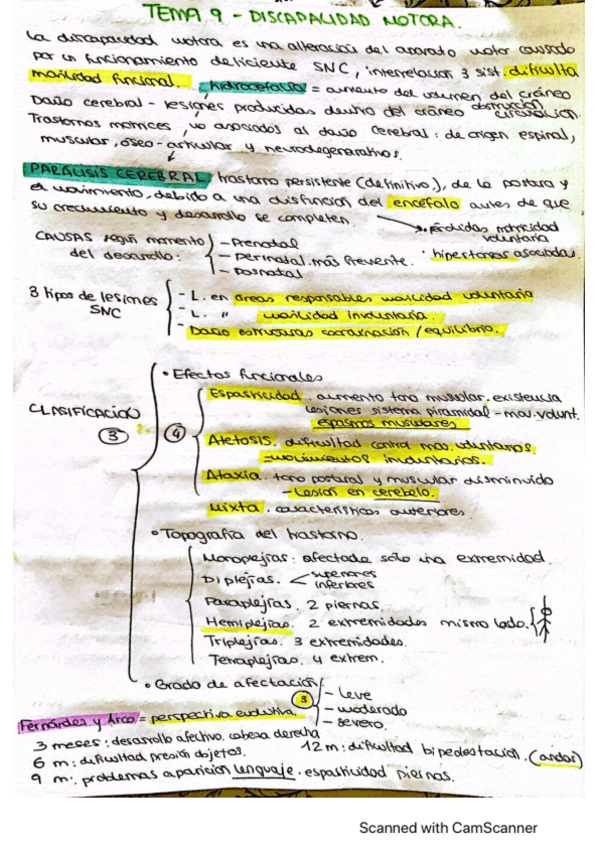 TEMA 9 - DISCAPACIDAD MOTORA.
La discapacidad motora es una alteración del aparato motor causado
por un funcionamiento deficiente SNC, interrelación 3 sist. dificulta
movilidad funcional. hidrocefalia = aumento del volumen del cráneo
obstrucción circulación.
Daño cerebral - lesiones producidas dentro del cráneo
Trastornos motrices, no asociados al daño cerebral: de origen espinal,
muscular, óseo-articular y neurodegenerativos.
PARÁLISIS CEREBRAL trastorno persistente (definitivo), de la postura y
el movimiento, debido a una disfunción del encéfalo antes de que
su crecimiento y desarrollo se completen.
· pérdidas motricidad
voluntaria
· hipertonias asociadas.
CAUSAS según momento
del desarrollo:
- Prenatal
- perinatal. más frevente.
- posnatal
3 tipos de lesiones
SNC
- L. en áreas responsables movilidad voluntaria
- L. " movilidad involuntaria.
- Daño estructuras coordinación / equilibrio.
CLASIFICACIÓN
3
• Efectos funcionales
4
Espasticidad. aumento tono muscular. existencia
lesiones sistema piramidal - mov. volunt.
espasmos musculares
Atetosis. dificultad control mov. voluntarios
- movimientos involuntarios.
Ataxia. tono postural y muscular disminuido
- Lesión en cerebelo.
Mixta. características anteriores
• Topografía del trastorno.
Monoplejías: afectada sólo una extremidad.
Diplejías. < superiores
inferiores
Paraplejías. 2 piernas.
Hemiplejías. 2 extremidades mismo lado.
Triplejías. 3 extremidades.
Tetraplejías. 4 extrem.
• Grado de afectación
3
- leve
- moderado
- severo.
Fernández y Arco = perspectiva evolutiva.
3 meses: desarrollo afectivo. cabeza derecha
6 m: dificultad presión objetos.
12 m: dificultad bipedestación. (andar)
9 m: problemas aparición lenguaje. espasticidad piernas.
Scanned with CamScanner